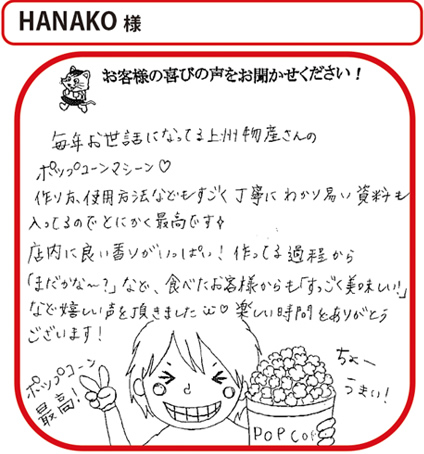 HANAKO 様
お客様の喜びの声をお聞かせください!
毎年お世話になってる上州物産さんの
ポップコーンマシーン♡
作り方、使用方法などもすごく丁寧にわかり易い資料も
入ってるのでとにかく最高です
店内に良い香りがいっぱい!作ってる過程から
「まだかな〜?」など、食べたお客様からも「すっごく美味しい!」
など嬉しい声を頂きました♡楽しい時間をありがとう
ございます!
ポップコーン
最高!
ちょー
うまい!
POPCOR